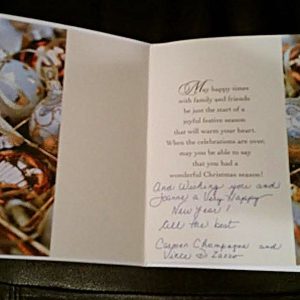 May happy times
with family and friends
be just the start of a
joyful festive season
that will warm your heart.
When the celebrations are over,
may you be able to say
that you had a
wonderful Christmas season!
And Wishing you and
Jeanne a Very Happy
New Year!
All the best
Carmen Champagne and
Vince Di